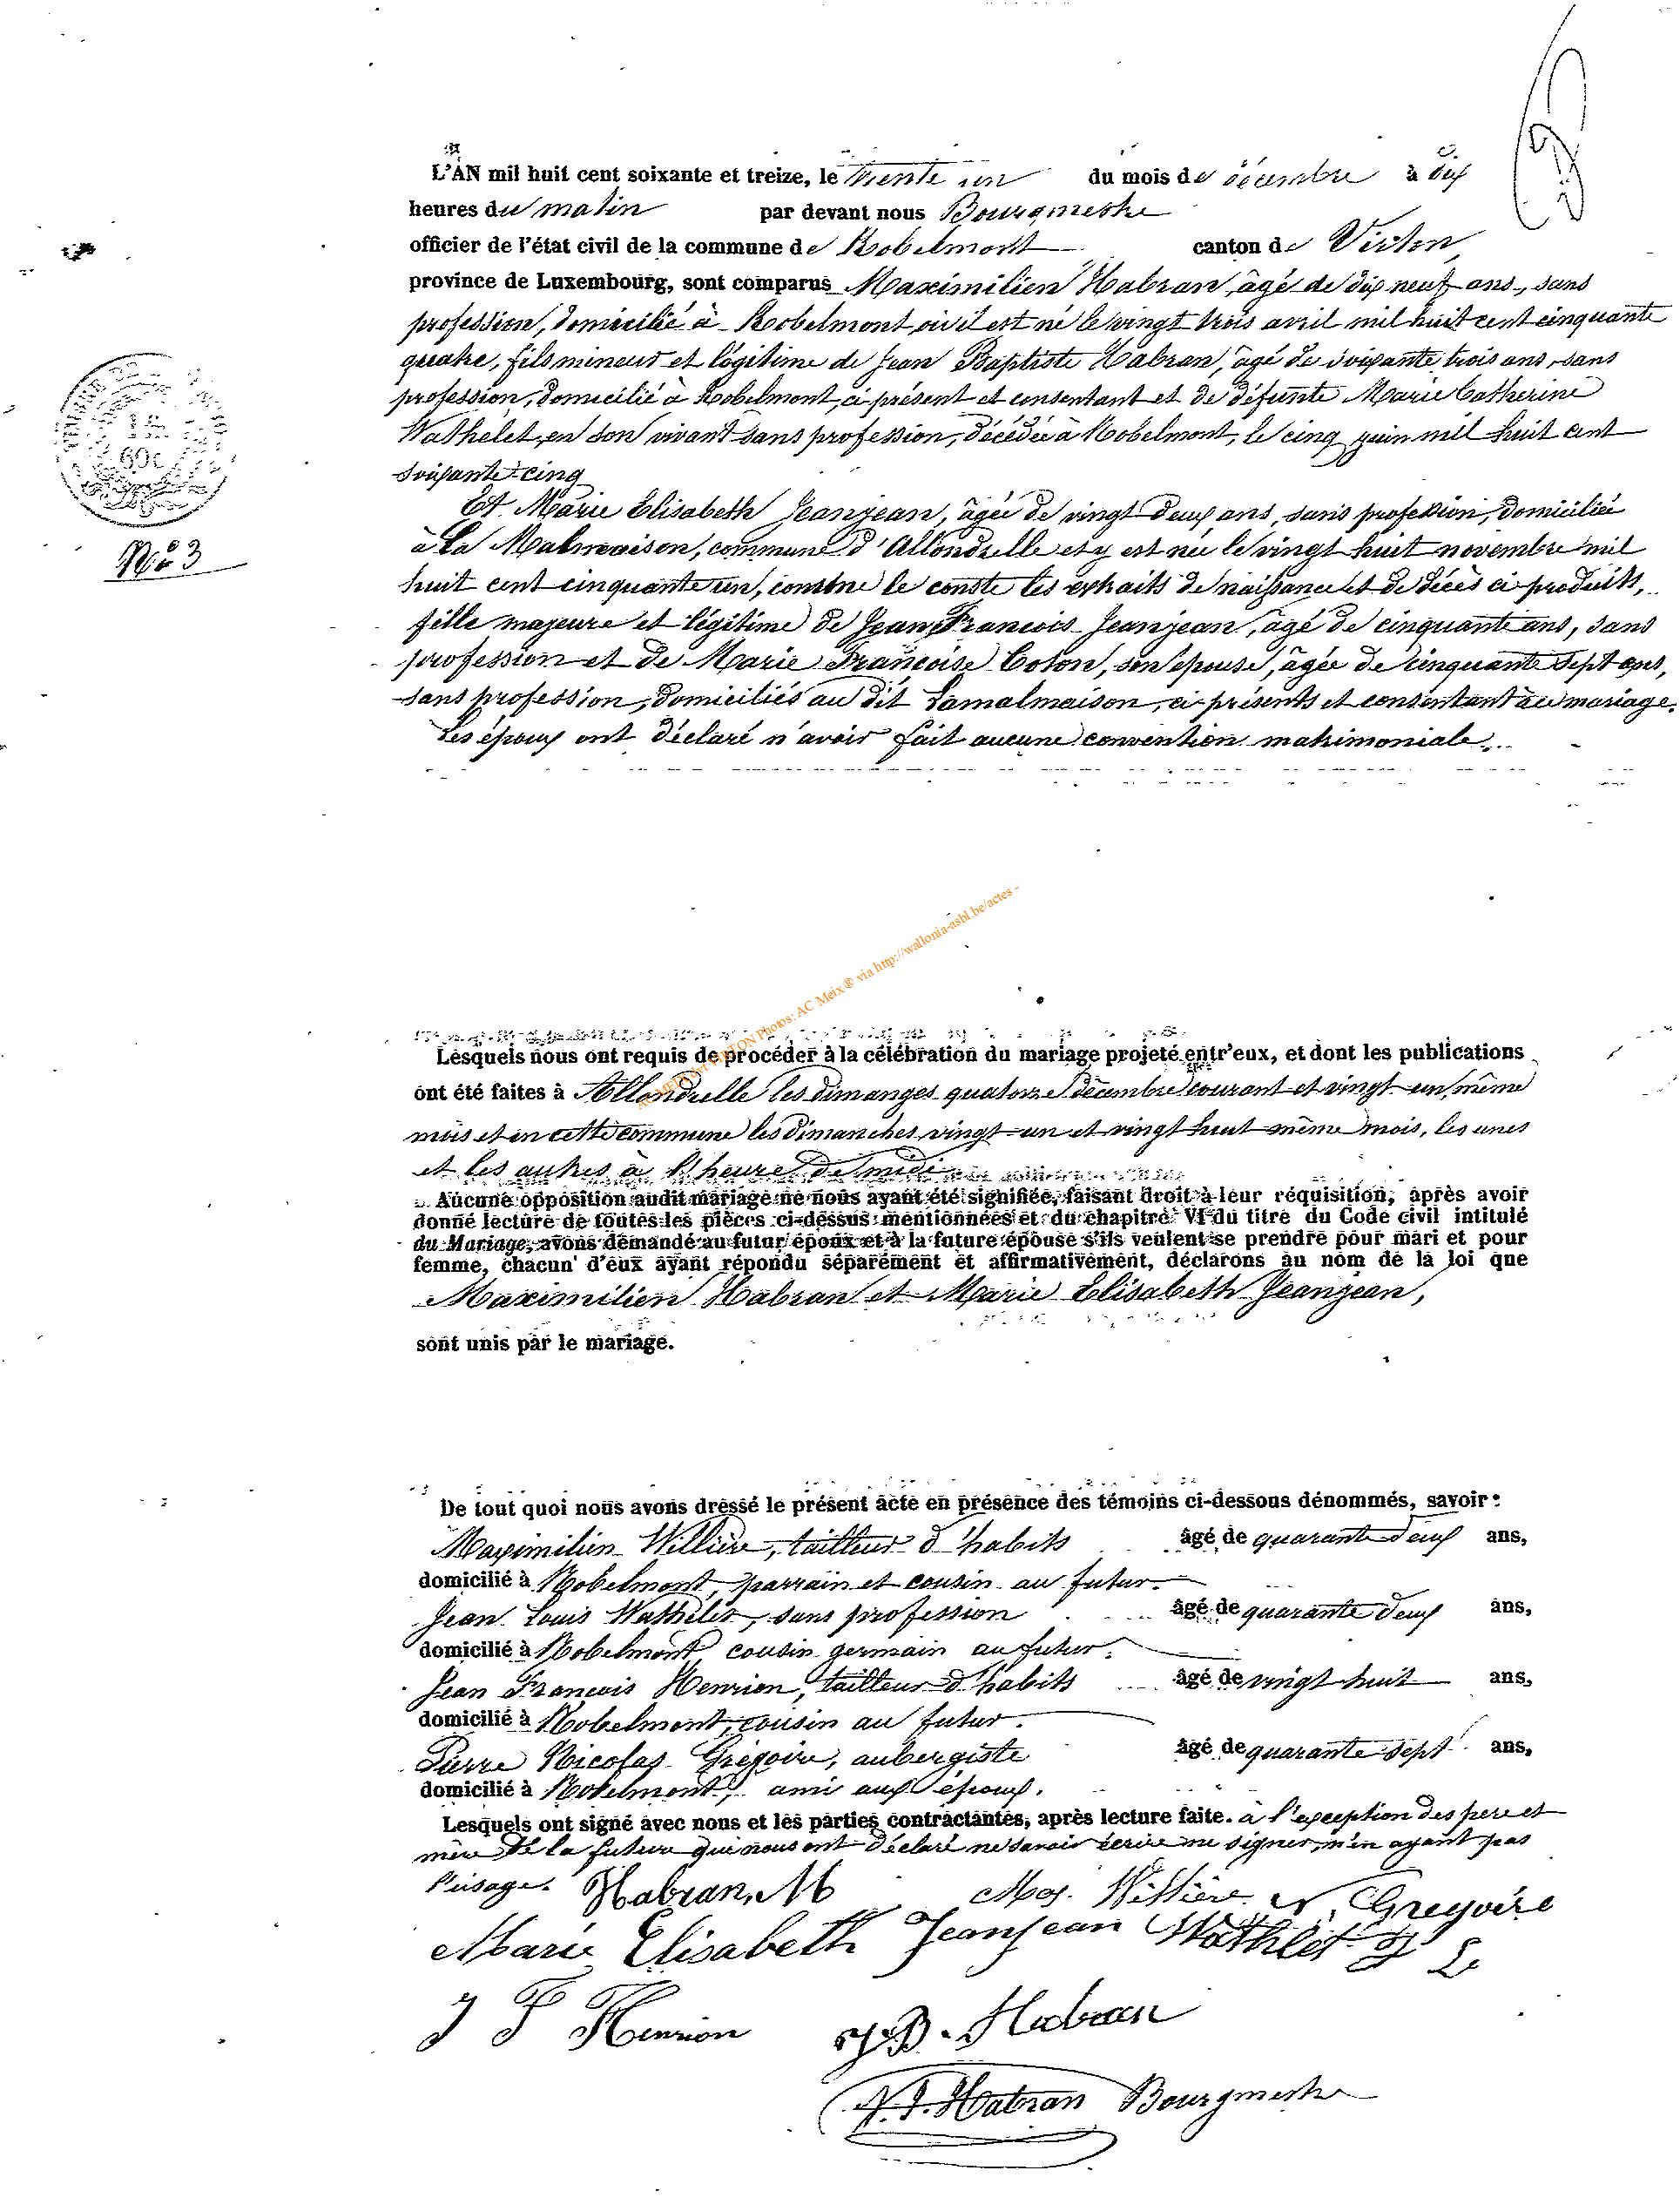 L'AN mil huit cent soixante et treize, le trente un du mois de décembre à dix
heures du matin par devant nous Bourgmestre
officier de l'état civil de la commune de Robelmont canton de Virton
province de Luxembourg, sont comparus Maximilien Habran, âgé de dix neuf ans, sans
profession, domicilié à Robelmont où il est né le vingt trois avril mil huit cent cinquante
quatre, fils mineur et légitime de Jean Baptiste Habran, âgé de soixante trois ans, sans
profession, domicilié à Robelmont, ci présent et consentant et de défunte Marie Catherine
Wathelet, en son vivant sans profession, décédée à Robelmont, le cinq juin mil huit cent
soixante-cinq
Et Marie Elisabeth Jeanjean, âgée de vingt deux ans, sans profession, domiciliée
à La Malmaison, commune d'Allondrelle et y est née le vingt huit novembre mil
huit cent cinquante un, comme le conste les extraits de naissance et de décès ci-produits,
fille majeure et légitime de Jean François Jeanjean, âgé de cinquante ans, sans
profession et de Marie Françoise Colon, son épouse, âgée de cinquante sept ans,
sans profession, domiciliés au dit Lamalmaison, ci-présents et consentant au mariage.
Les époux ont déclaré n'avoir fait aucune convention matrimoniale.
60c
N° 3
AC Meix ® via http://wallonia-asbl.be/actes -
Lesquels nous ont requis de procéder à la célébration du mariage projeté entr'eux, et dont les publications
ont été faites à Allondrelle les dimanges quatorze décembre courant et vingt un même
mois et en cette commune les dimanches vingt-un et vingt huit même mois, les unes
et les autres à l'heure de midi
Aucune opposition audit mariage ne nous ayant été signifiée, faisant droit à leur réquisition, après avoir
donné lecture de toutes les pièces ci-dessus mentionnées et du chapitre VI du titre du Code civil intitulé
du Mariage, avons demandé au futur époux et à la future épouse s'ils veulent se prendre pour mari et pour
femme, chacun d'eux ayant répondu séparément et affirmativement, déclarons au nom de la loi que
Maximilien Habran et Marie Elisabeth Jeanjean,
sont unis par le mariage.
De tout quoi nous avons dressé le présent acte en présence des témoins ci-dessous dénommés, savoir :
Maximilien Willière, tailleur d'habits âgé de quarante deux ans,
domicilié à Robelmont, parrain et cousin au futur.
Jean Louis Wathelet, sans profession âgé de quarante deux ans,
domicilié à Robelmont, cousin germain au futur.
Jean François Henrion, tailleur d'habits âgé de vingt huit ans,
domicilié à Robelmont, cousin au futur.
Pierre Nicolas Grégoire, aubergiste âgé de quarante sept ans,
domicilié à Robelmont, ami aux époux.
Lesquels ont signé avec nous et les parties contractantes, après lecture faite. à l'exception des père et
mère de la future qui nous ont déclaré ne savoir écrire ni signer, n'en ayant pas
l'usage. Habran, M Max. Willière N. Gregoire
Marie Elisabeth Jeanjean Wathlet J L
J F Henrion J.B. Habran
Habran Bourgmestre